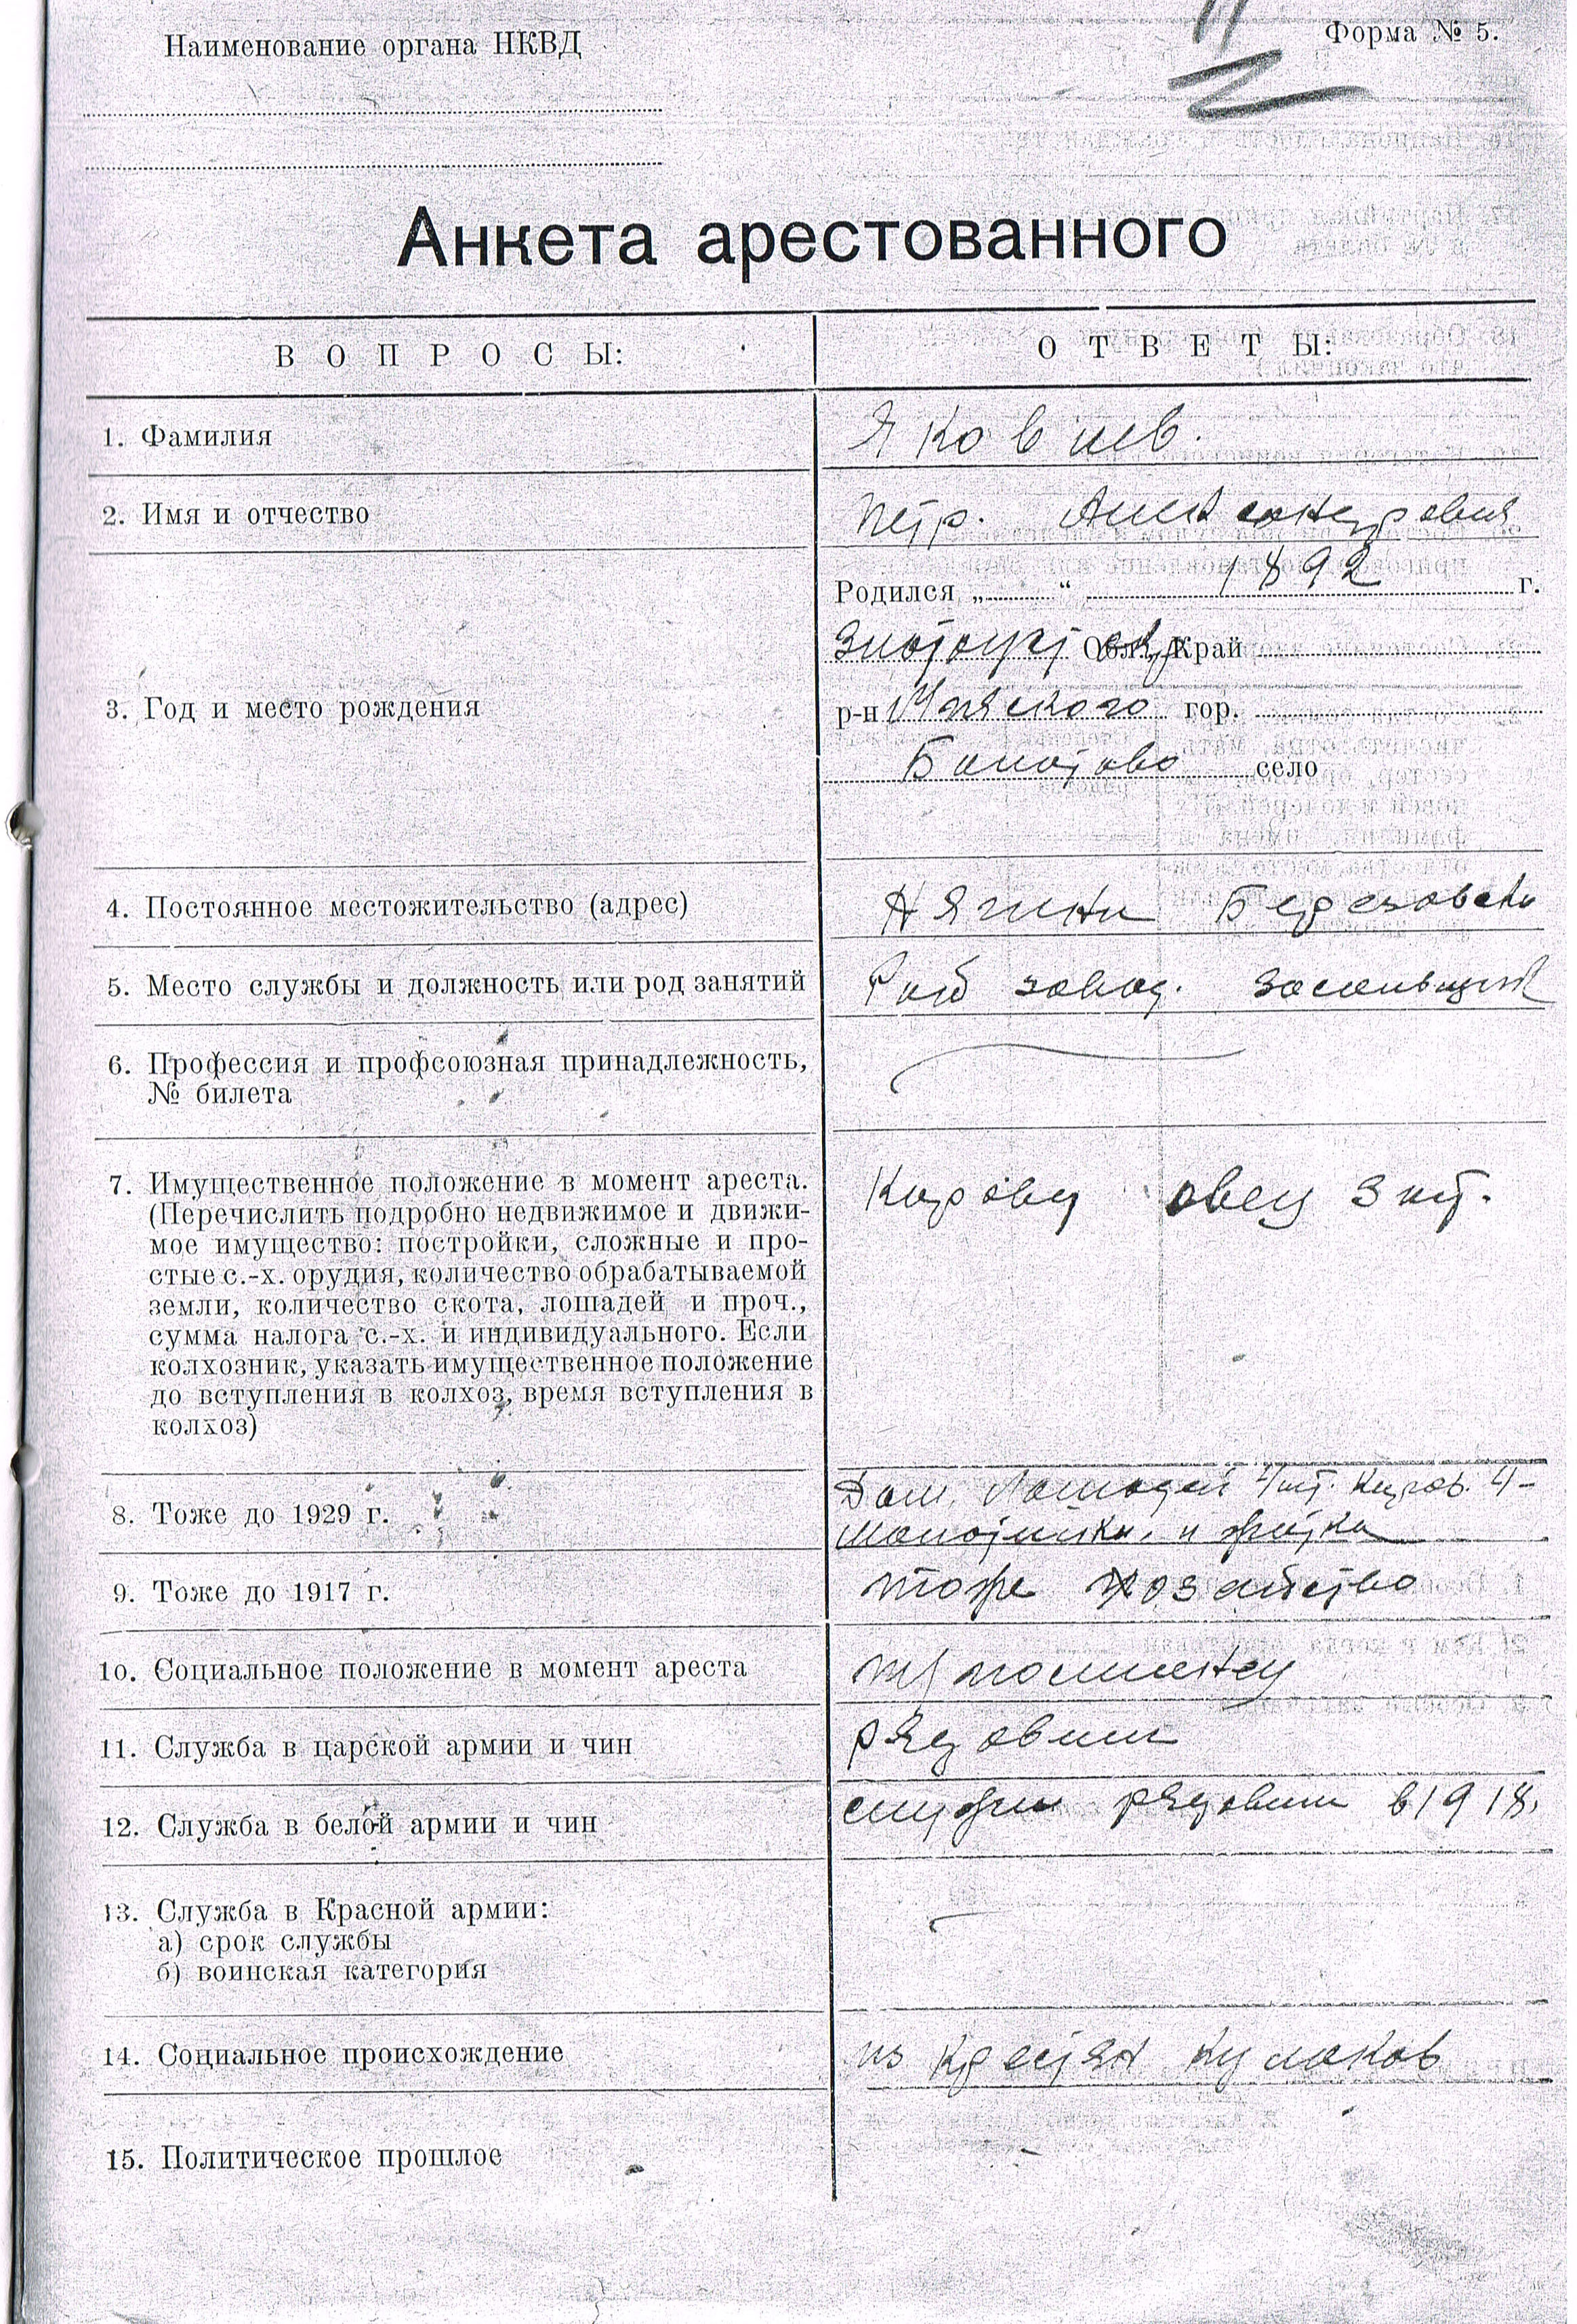 Наименование органа НКВД
Форма № 5.
Анкета арестованного
ВОПРОСЫ:
ОТВЕТЫ:
1. Фамилия
Яковлев.
2. Имя и отчество
Петр. Александрович
3. Год и место рождения
Родился „ “ 1892 г.
Златоуст Обл., Край
р-н гор.
село
4. Постоянное местожительство (адрес)
Нягинь Березовск
5. Место службы и должность или род занятий
Рыб завод. Засольщик
6. Профессия и профсоюзная принадлежность,
№ билета
7. Имущественное положение в момент ареста.
(Перечислить подробно недвижимое и движи-
мое имущество: постройки, сложные и про-
стые с.-х. орудия, количество обрабатываемой
земли, количество скота, лошадей и проч.,
сумма налога с.-х. и индивидуального. Если
колхозник, указать имущественное положение
до вступления в колхоз, время вступления в
колхоз)
Корову овец 3 шт.
8. Тоже до 1929 г.
Дом, Лошадей 4 шт. Коров. 4-
молотилка. и жатка
9. Тоже до 1917 г.
тоже хозяйство
10. Социальное положение в момент ареста
тр/поселенец
11. Служба в царской армии и чин
рядовым
12. Служба в белой армии и чин
служил рядовым в 1918.
13. Служба в Красной армии:
а) срок службы
б) воинская категория
14. Социальное происхождение
из крестьян кулаков
15. Политическое прошлое